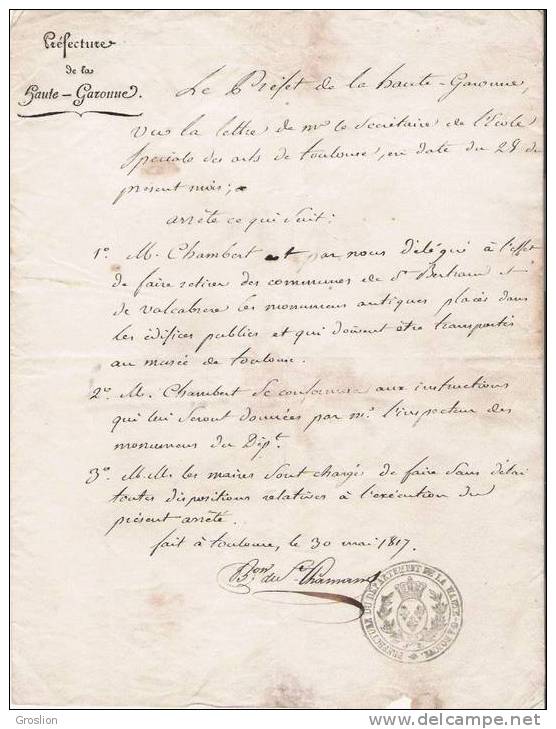 Préfecture
de la
Haute-Garonne.
Le Préfet de la haute-Garonne,
Vu la lettre de mr le Secrétaire de l'Ecole
Speciale des arts de toulouse, en date du 28 de
present mois;
arrête ce qui suit:
1o. M. Chambert est par nous délégué à l'effet
de faire retirer des communes de St Bertrand et
de valcabrere les monumens antiques placés dans
les édifices publics et qui doivent être transportés
au musée de toulouse.
2o. M. Chambert se conformera aux instructions
qui lui seront données par mr. l'inspecteur des
monumens du Dépt.
3o. M.Mrs les maires sont chargés de faire sans délai
toutes dispositions relatives à l'exécution du
présent arrêté.
fait à toulouse, le 30 mai 1817.
Bon de St Chamans
PREFECTURE DU DEPARTEMENT DE LA HAUTE-GARONNE.
Groslion
www.delcampe.net